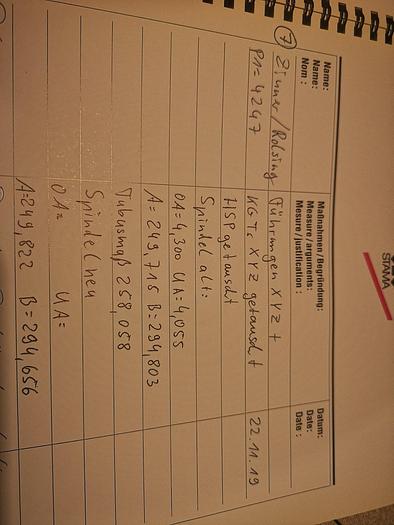 STAMA
Name: Maßnahmen / Begründung: Datum:
Name: Measure / arguments: Date:
Nom : Mesure / justification : Date :
7 Zinner/Rolsing Führungen XYZ + 22.11.19
P1= 4247 KGT. XYZ getauscht
HSP getauscht
Spindel alt:
OA=4,300 UA=4,055
A=249,715 B=294,803
Tubusmaß 258,058
Spindel neu
OA= UA=
A=249,822 B=294,656